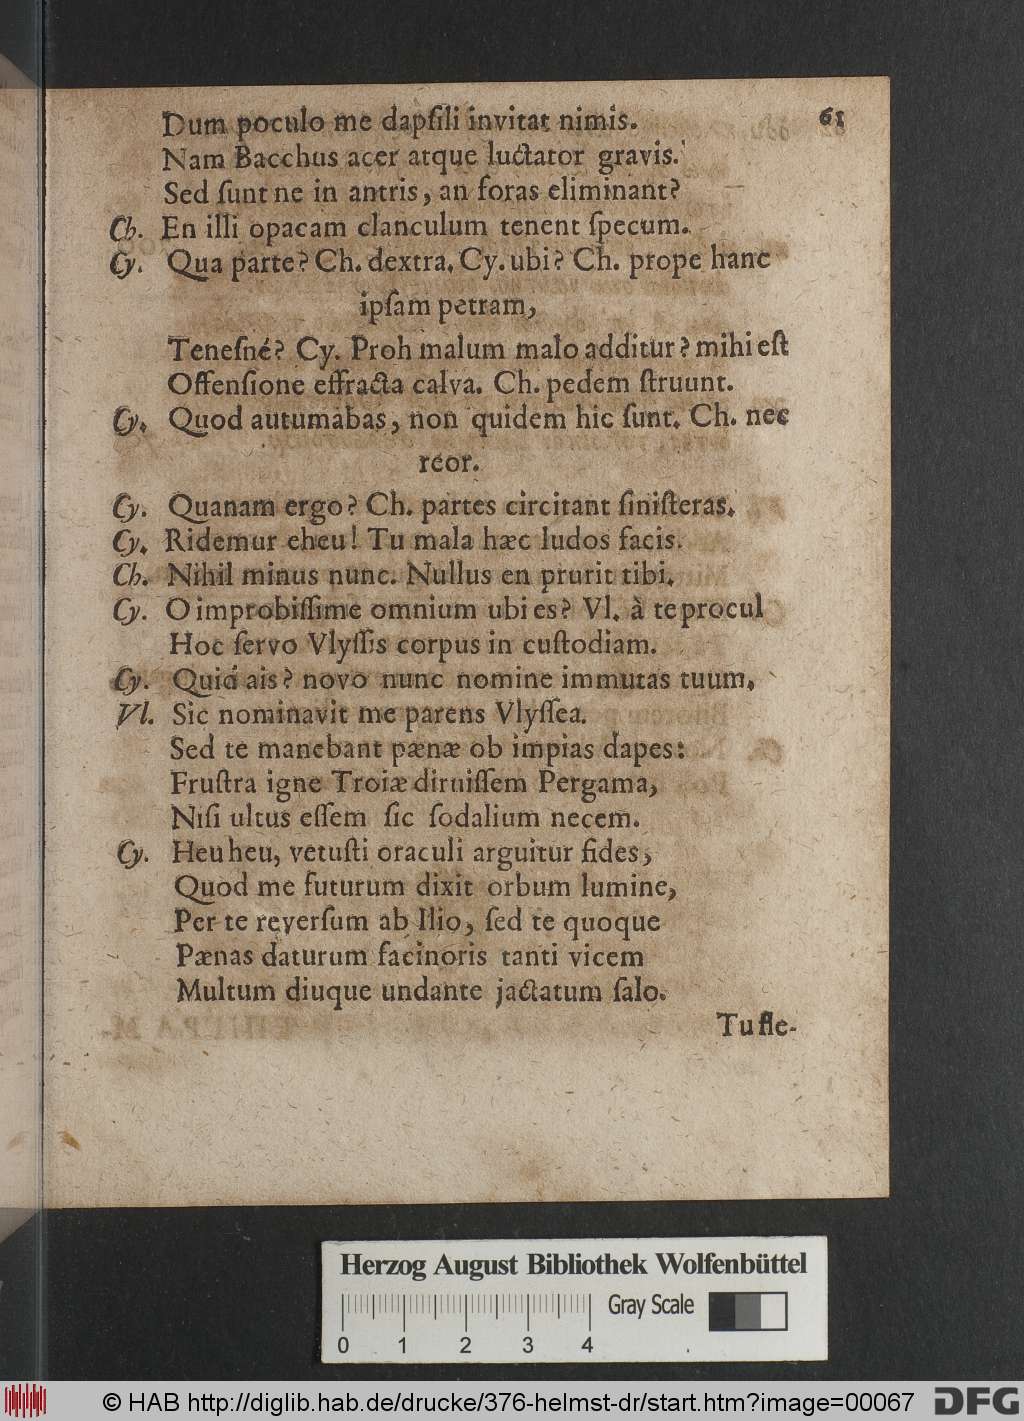 61
Dum poculo me dapſili invitat nimis.
Nam Bacchus acer atque luctator gravis.
Sed ſunt ne in antris, an foras eliminant?
Ch. En illi opacam clanculum tenent ſpecum.
Cy. Qua parte? Ch. dextra. Cy. ubi? Ch. prope hanc
ipſam petram,
Teneſné? Cy. Proh malum malo additur? mihi eſt
Offenſione effracta calva. Ch. pedem ſtruunt.
Cy. Quod autumabas, non quidem hic ſunt. Ch. nec
reor.
Cy. Quanam ergo? Ch. partes circitant ſiniſteras.
Cy. Ridemur eheu! Tu mala hæc ludos facis.
Ch. Nihil minus nunc. Nullus en prurit tibi.
Cy. O improbiſſime omnium ubi es? Vl. à te procul
Hoc ſervo Vlyſſis corpus in cuſtodiam.
Cy. Quid ais? novo nunc nomine immutas tuum.
Vl. Sic nominavit me parens Vlyſſea.
Sed te manebant pænæ ob impias dapes:
Fruſtra igne Troiæ diruiſſem Pergama,
Niſi ultus eſſem ſic ſodalium necem.
Cy. Heu heu, vetuſti oraculi arguitur fides,
Quod me futurum dixit orbum lumine,
Per te reverſum ab Ilio, ſed te quoque
Pænas daturum facinoris tanti vicem
Multum diuque undante jactatum ſalo.
Tu fle-
Herzog August Bibliothek Wolfenbüttel
Gray Scale
0 1 2 3 4
© HAB http://diglib.hab.de/drucke/376-helmst-dr/start.htm?image=00067
DFG